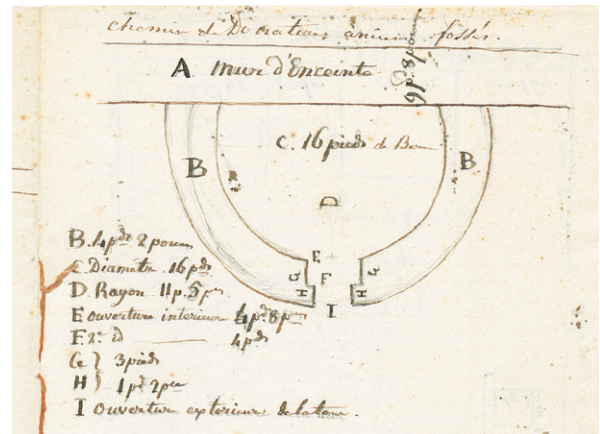 chemin de
fossés.
A mur d'Enceinte
6 p. 8 po
C. 16 pieds de
B
B
D
E
G
F
G
H
H
I
B. 4 pds 2 pouces
C Diametre 16 pds
D. Rayon 11 p. 5 po
E ouverture interieure 4 pds 8 po
F. 2e id 4 pds
G } 3 pieds
H } 1 pd 2 po
I ouverture exterieure de la tour.